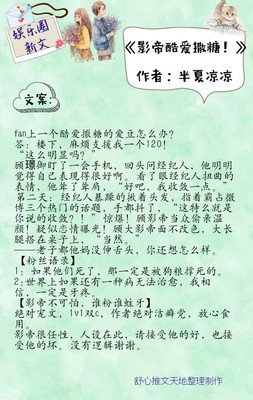 娱乐圈
新文
《影帝酷爱撒糖！》
作者：半夏凉凉
文案：
fan上一个酷爱撒糖的爱豆怎么办？
答：楼下，麻烦支援我一个120！
“这么明显吗？”
顾珊御盯了一会手机，回头问经纪人，他明明
觉得自己表现得很好啊。看了眼经纪人扭曲的
表情，他耸了耸肩，“好吧，我收敛一点。”
第二天：经纪人暴躁的揪着头发，指着霸占微
博三个热门的话题，手都抖了，“这特么就是
你说的收敛？！”惊爆！顾影帝当众偷亲温
颜！疑似恋情曝光！顾大影帝面不改色，大长
腿搭在桌子上，“当然，”
——老子都他妈没伸舌头，你还想怎么样。
【粉丝语录】
1：如果他们死了，那一定是被狗粮撑死的。
2：世界上如果还有一种病无法治愈，我相
信，一定是牙疼。
【影帝不可怕，谁粉谁蛀牙】
绝对宠文，1v1双c，作者绝对洁癖受，放心食
用。
影帝很任性，人设在此，请接受他的好，也接
受他的坏。没有逻辑谢谢。
舒心推文天地整理制作